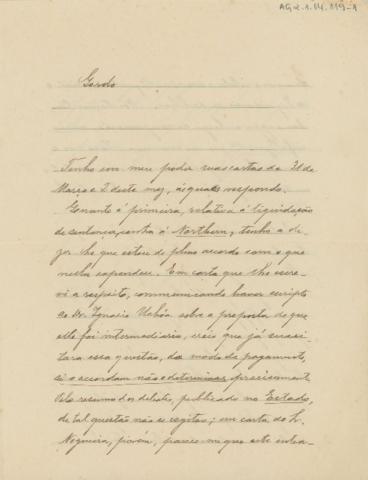 AG 2.1.14.119-1
Gordo
Tenho em meu poder suas cartas de 31 de
Março e 2 deste mez, ás quaes respondo.
á primeira, relativa á liquidação
de sentença contra a Northern, tenho a di-
zer-lhe que estou de pleno accordo com o que
nella expendeu. Em carta que lhe escre-
vi a respeito, communicando haver escripto
ao Dr. Ignacio Uchôa sobre a proposta de que
elle foi intermediario, creio que já susci-
tara essa questão, do modo de pagamento,
si o accordam não o determinar precisamente.
Pelo resumo dos debates, publicado no Estado,
de tal questão não se cogitou; em carta do
Nogueira, porém, parece-me que este